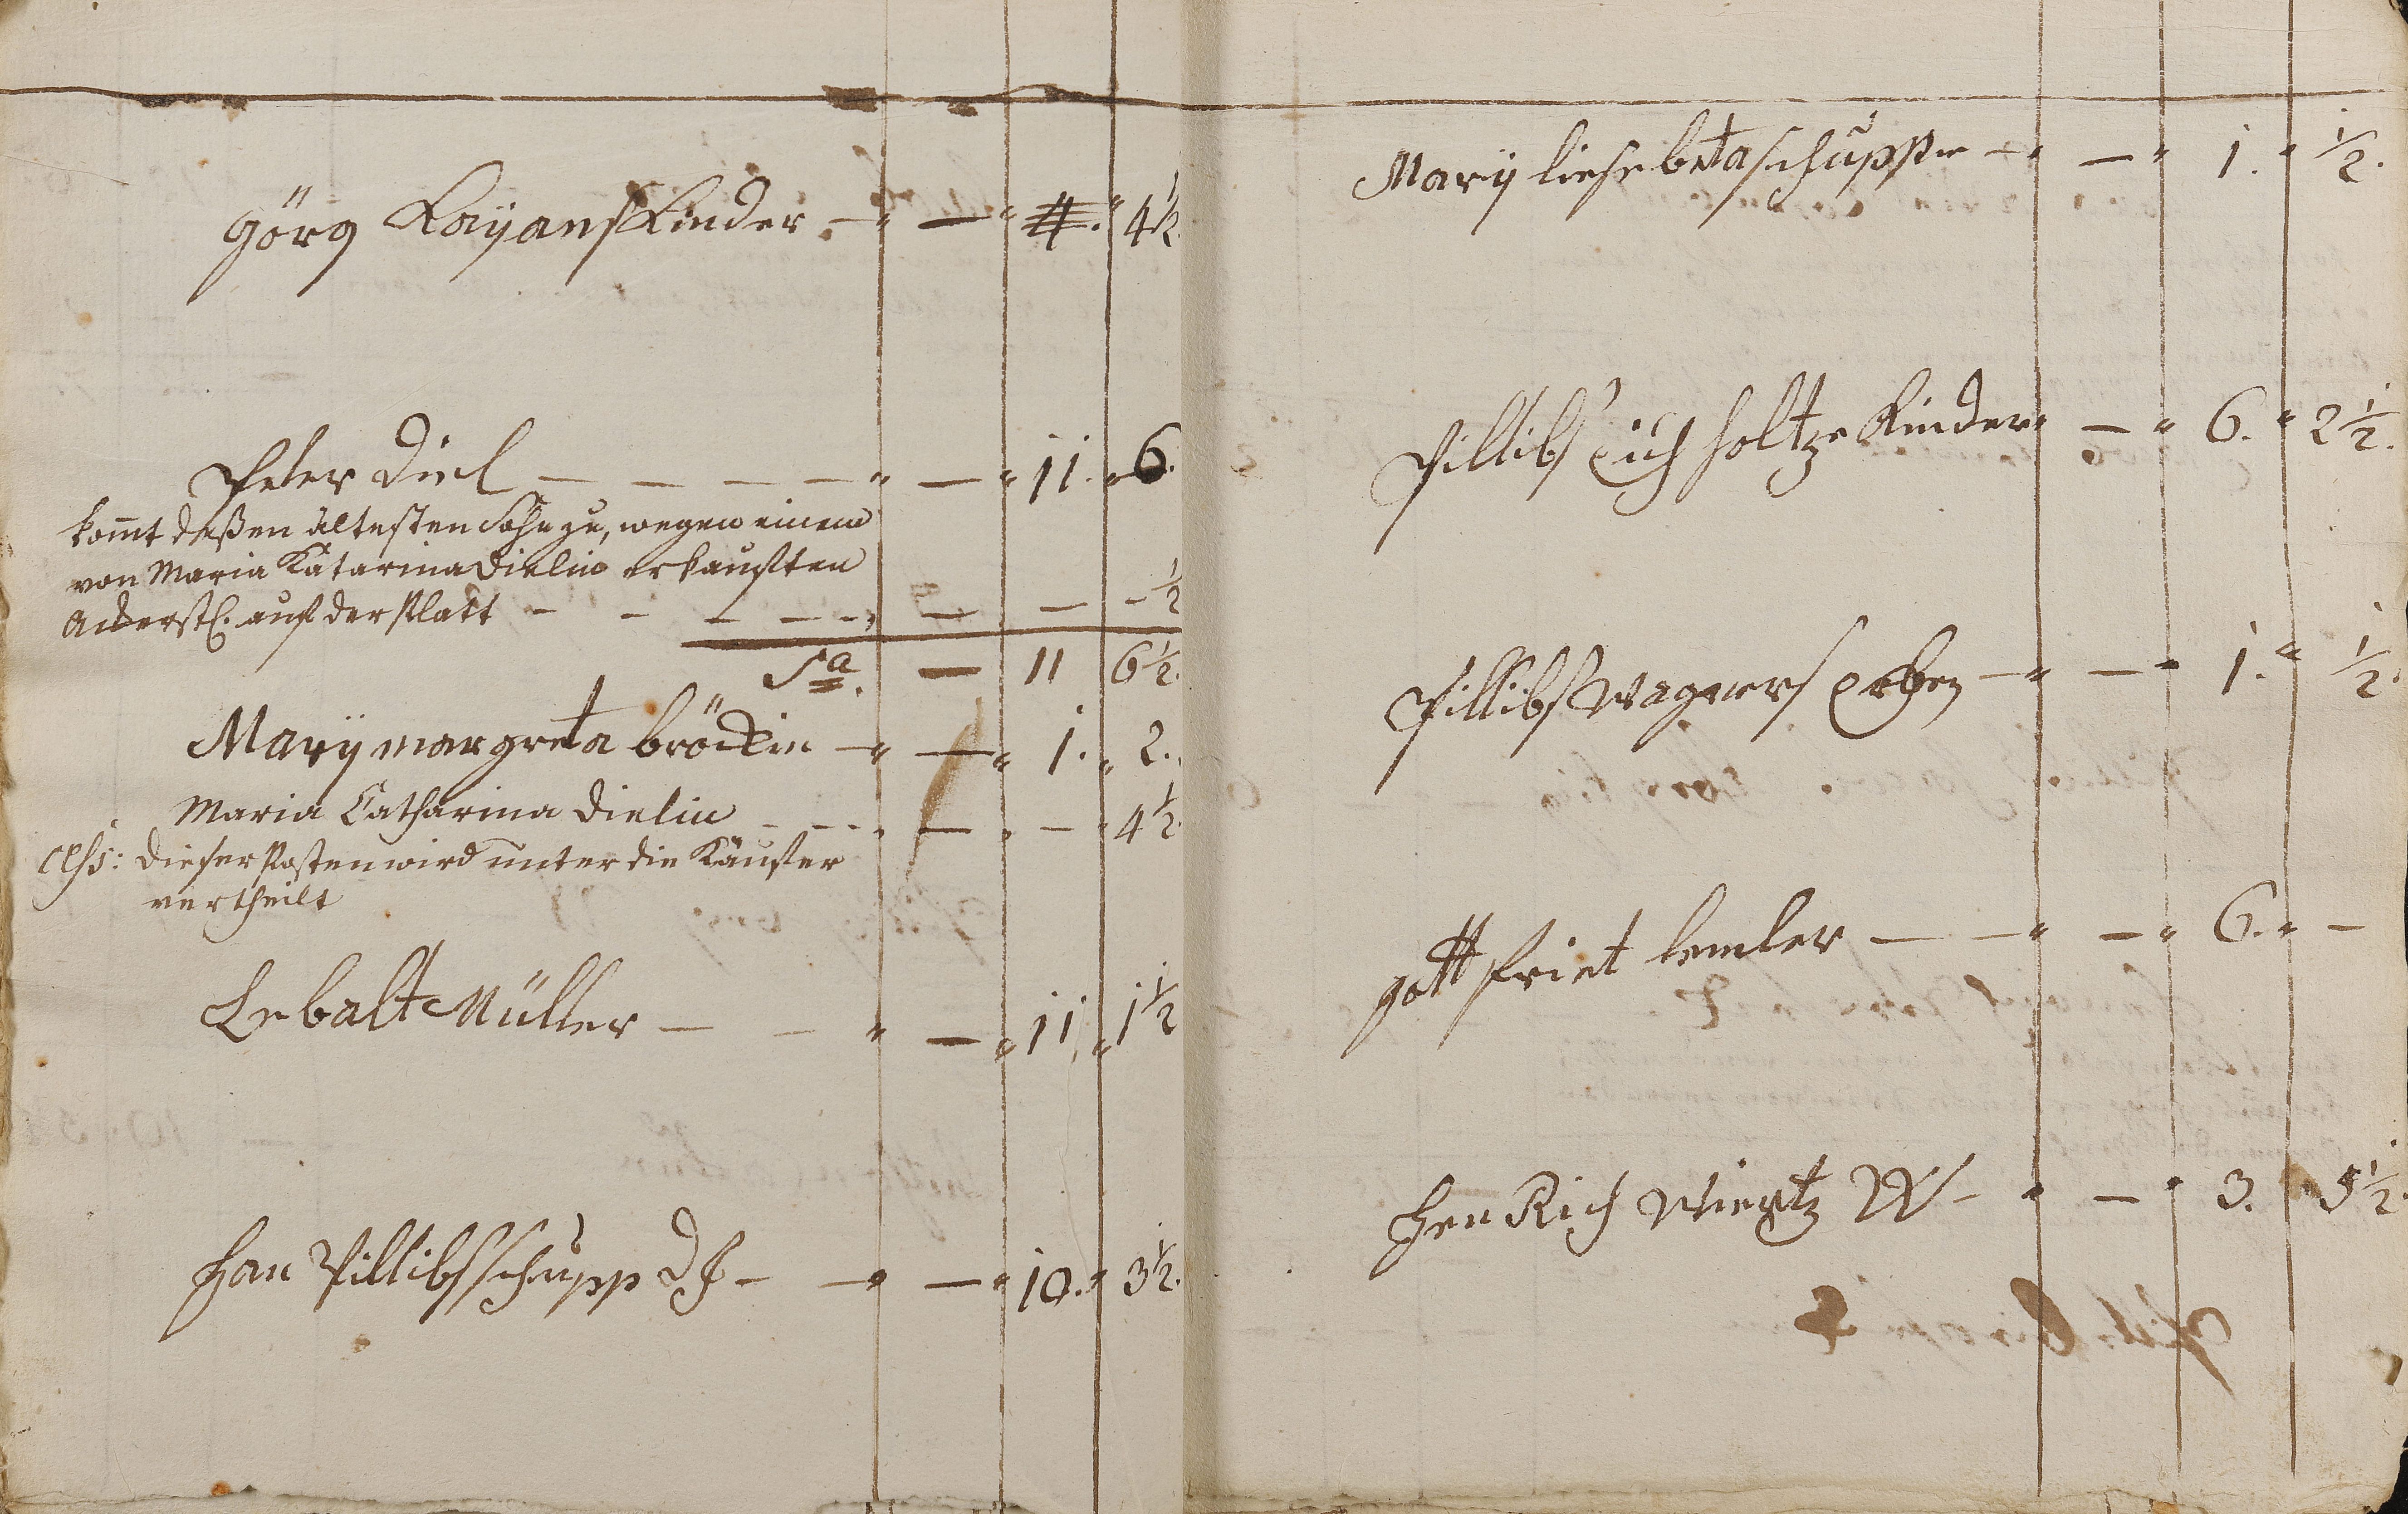 Görg Kaÿans Kinder — " — " 4. " 4½
Peter Diel — — — — " — " 11. " 6.
kom̄t deßen ältesten Sohn zu, wegen einem
von Maria Katarina Dielin erkaufften
Ackerst. auf der Platt — — — — — — — — ½
Sa. — 11 6½.
Marÿ margreta bröckin — " — " 1. " 2.
Maria Catharina Dielin — — — — — 4½.
dieser Posten wird unter die Käufer
vertheilt
Lebalt Müller — — " — " 11 " 1½
Han Pillibs schupp — — " — " 10. " 3½.
Marÿ liesebeta schuppin — " — " 1. " ½.
Pillibs Eich holtze Kinder " — " 6. " 2½.
Pillibs Wagners Erben — " — " 1. " ½.
gottfriet lemler — — " — " 6. " —
Hen Rich Wiertz W — " — " 3. " 5½